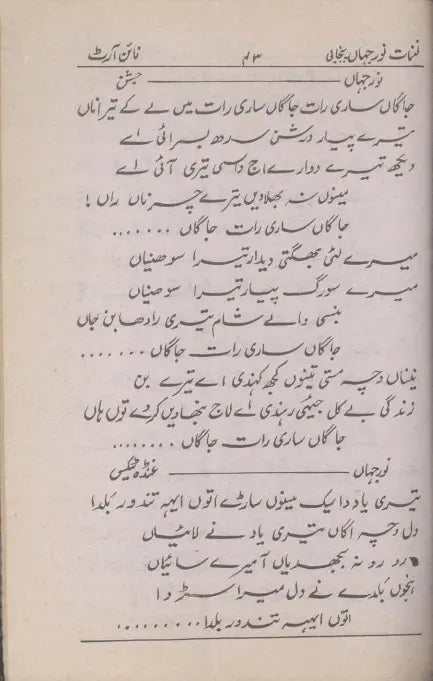 نغمات نور جہاں پنجابی ۳۱ م فائن آرٹ
نور جہاں ——— جشن
جاگاں ساری رات جاگاں ساری رات میں لے کے تیرا ناں
تیرے پیار درشن سدھ بسرائی اے
دیکھ تیرے دوارے اج داسی تیری آئی اے
مینوں نہ بھلا دیں تیرے چرناں راں !
جاگاں ساری رات جاگاں .......
میرے لئی بھگتی دیدار تیرا سوھنیاں
میرے سورگ پیار تیرا سوھنیاں
بنسی والے شام تیری رادھا بن جاں
جاگاں ساری رات جاگاں .......
نیناں وچہ مستی تینوں کجھ کہندی اے تیرے بن
زندگی بے کل جیئی رہندی اے لاج نبھا دیں کر دے توں ہاں
جاگاں ساری رات جاگاں ........
نور جہاں ——— غنڈہ ٹیکس
تیری یاد دا سیک مینوں ساڑے اتوں ایہہ تندور بلدا
دل وچہ اگاں تیری یاد نے لائیاں
رو رو نہ بجھدیاں آ میرے سائیاں
ہنجوں بلدے نے دل میرا سڑدا
اتوں ایہہ تندور بلدا .........